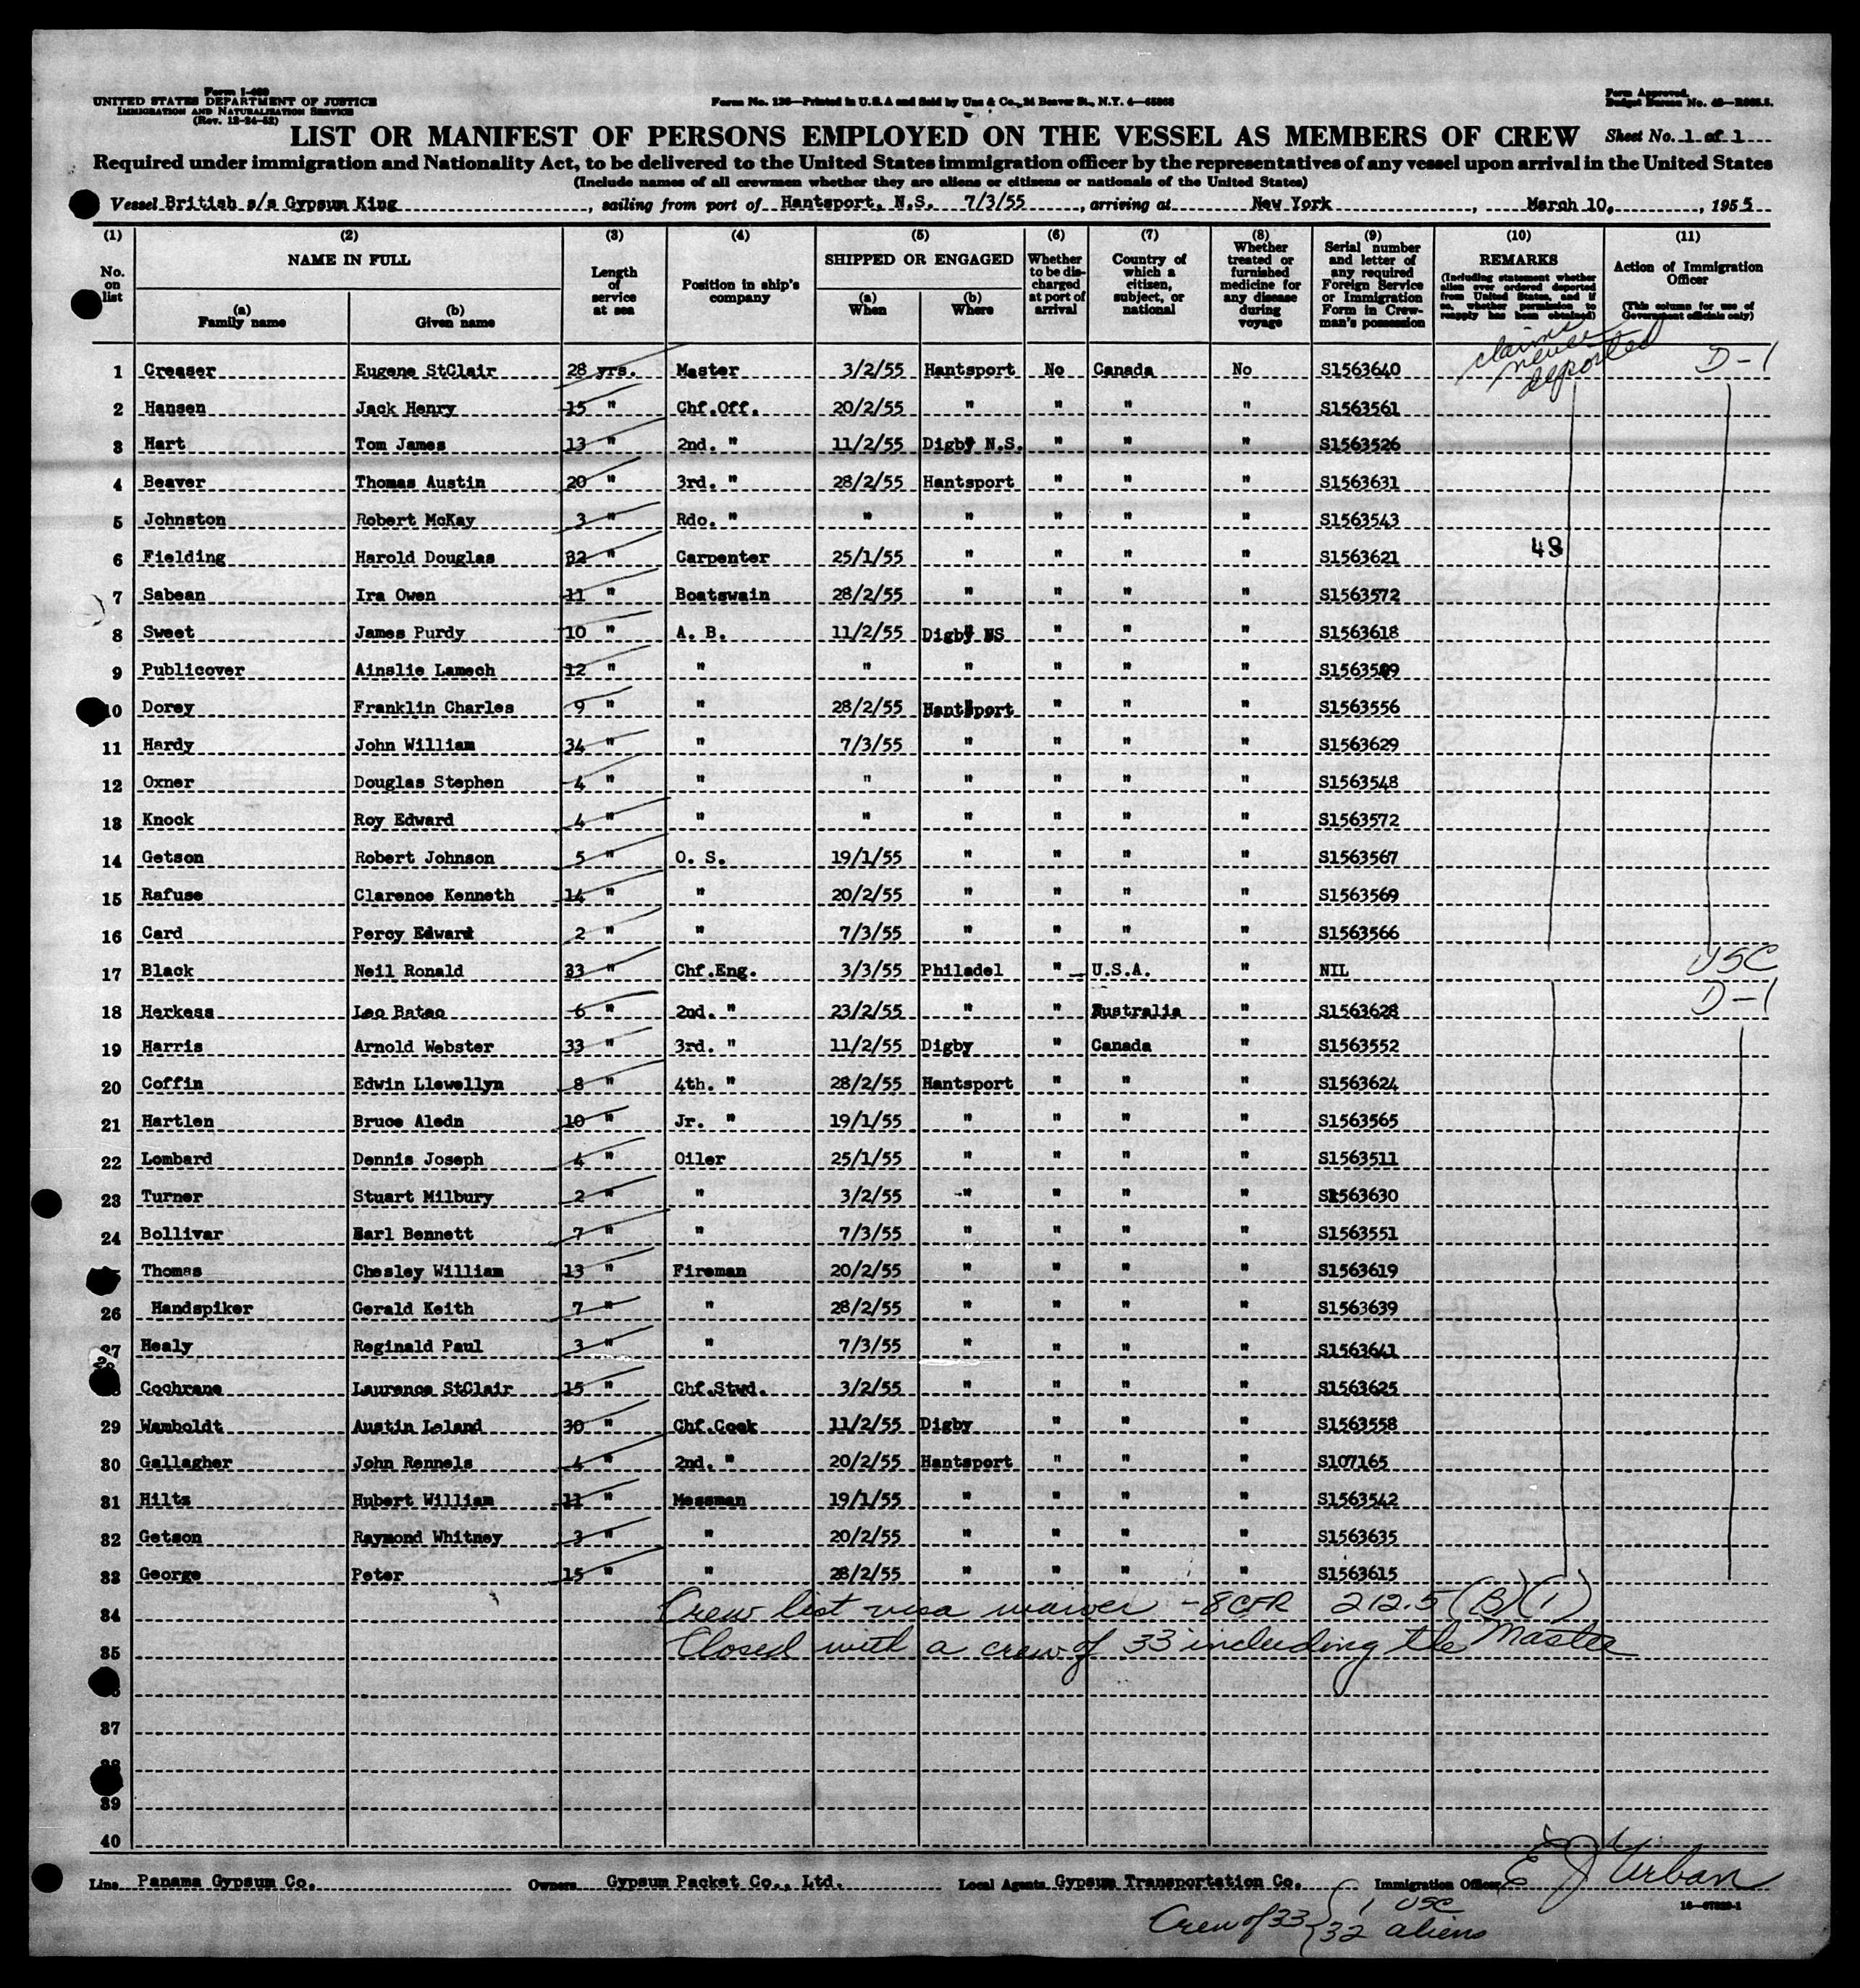 Form I-480
UNITED STATES DEPARTMENT OF JUSTICE
IMMIGRATION AND NATURALIZATION SERVICE
(Rev. 12-24-52)
Form No. 136—Printed in U.S.A and Sold by Unz & Co., 24 Beaver St., N.Y. 4—
Form Approved.
Budget Bureau No.
LIST OR MANIFEST OF PERSONS EMPLOYED ON THE VESSEL AS MEMBERS OF CREW Sheet No. 1 of 1
Required under immigration and Nationality Act, to be delivered to the United States immigration officer by the representatives of any vessel upon arrival in the United States
(Include names of all crewmen whether they are aliens or citizens or nationals of the United States)
Vessel British s/s Gypsum King, sailing from port of Hantsport, N.S. 7/3/55, arriving at New York, March 10, 1955
(1) (2) (3) (4) (5) (6) (7) (8) (9) (10) (11)
No. on list
NAME IN FULL
(a) Family name
(b) Given name
Length of service at sea
Position in ship's company
SHIPPED OR ENGAGED
(a) When
(b) Where
Whether to be discharged at port of arrival
Country of which a citizen, subject, or national
Whether treated or furnished medicine for any disease during voyage
Serial number and letter of any required Foreign Service or Immigration Form in Crewman's possession
REMARKS
(Including statement whether alien ever ordered deported from United States, and if so, whether permission to reapply has been obtained)
Action of Immigration Officer
(This column for use of Government officials only)
1 Creaser Eugene StClair 28 yrs. Master 3/2/55 Hantsport No Canada No S1563640 claims never deported D-1
2 Hansen Jack Henry 15 " Chf.Off. 20/2/55 " " " " S1563561
3 Hart Tom James 13 " 2nd. " 11/2/55 Digby N.S. " " " S1563526
4 Beaver Thomas Austin 20 " 3rd. " 28/2/55 Hantsport " " " S1563631
5 Johnston Robert McKay 3 " Rdo. " " " " " " S1563543
6 Fielding Harold Douglas 32 " Carpenter 25/1/55 " " " " S1563621 48
7 Sabean Ira Owen 11 " Boatswain 28/2/55 " " " " S1563572
8 Sweet James Purdy 10 " A. B. 11/2/55 Digby NS " " " S1563618
9 Publicover Ainslie Lamech 12 " " " " " " "
10 Dorey Franklin Charles 9 " " 28/2/55 Hantsport " " " S1563556
11 Hardy John William 34 " " 7/3/55 " " " " S1563629
12 Oxner Douglas Stephen 4 " " " " " " " S1563548
13 Knock Roy Edward 4 " " " " " " " S1563572
14 Getson Robert Johnson 5 " O. S. 19/1/55 " " " " S1563567
15 Rafuse Clarence Kenneth 14 " " 20/2/55 " " " " S1563569
16 Card Percy Edward 2 " " 7/3/55 " " " " S1563566
17 Black Neil Ronald 33 " Chf.Eng. 3/3/55 Philadel " U.S.A. " NIL USC
18 Harkess Leo Bateo 6 " 2nd. " 23/2/55 " " Australia " S1563628 D-1
19 Harris Arnold Webster 33 " 3rd. " 11/2/55 Digby " Canada " S1563552
20 Coffin Edwin Llewellyn 8 " 4th. " 28/2/55 Hantsport " " " S1563624
21 Hartlen Bruce Aledn 10 " Jr. " 19/1/55 " " " " S1563565
22 Lombard Dennis Joseph 4 " Oiler 25/1/55 " " " " S1563511
23 Turner Stuart Milbury 2 " " 3/2/55 " " " " S1563630
24 Bollivar Earl Bennett 7 " " 7/3/55 " " " " S1563551
Thomas Chesley William 13 " Fireman 20/2/55 " " " " S1563619
26 Handspiker Gerald Keith 7 " " 28/2/55 " " " " S1563639
27 Healy Reginald Paul 3 " " 7/3/55 " " " " S1563641
Cochrane Laurence StClair 15 " Chf.Stwd. 3/2/55 " " " " S1563625
29 Wamboldt Austin Leland 30 " Chf.Cook 11/2/55 Digby " " " S1563558
30 Gallagher John Rennels 4 " 2nd. " 20/2/55 Hantsport " " " S107165
31 Hiltz Hubert William 11 " Messman 19/1/55 " " " " S1563542
32 Getson Raymond Whitney 3 " " 20/2/55 " " " " S1563635
33 George Peter 15 " " 28/2/55 " " " " S1563615
34 Crew list visa waiver - 8 CFR 212.5 (B)(1)
35 Closed with a crew of 33 including the Master
37
38
39
40
Line Panama Gypsum Co. Owners Gypsum Packet Co., Ltd. Local Agents Gypsum Transportation Co. Immigration Officer E J Urban
Crew of 33 { 1 USC
32 aliens